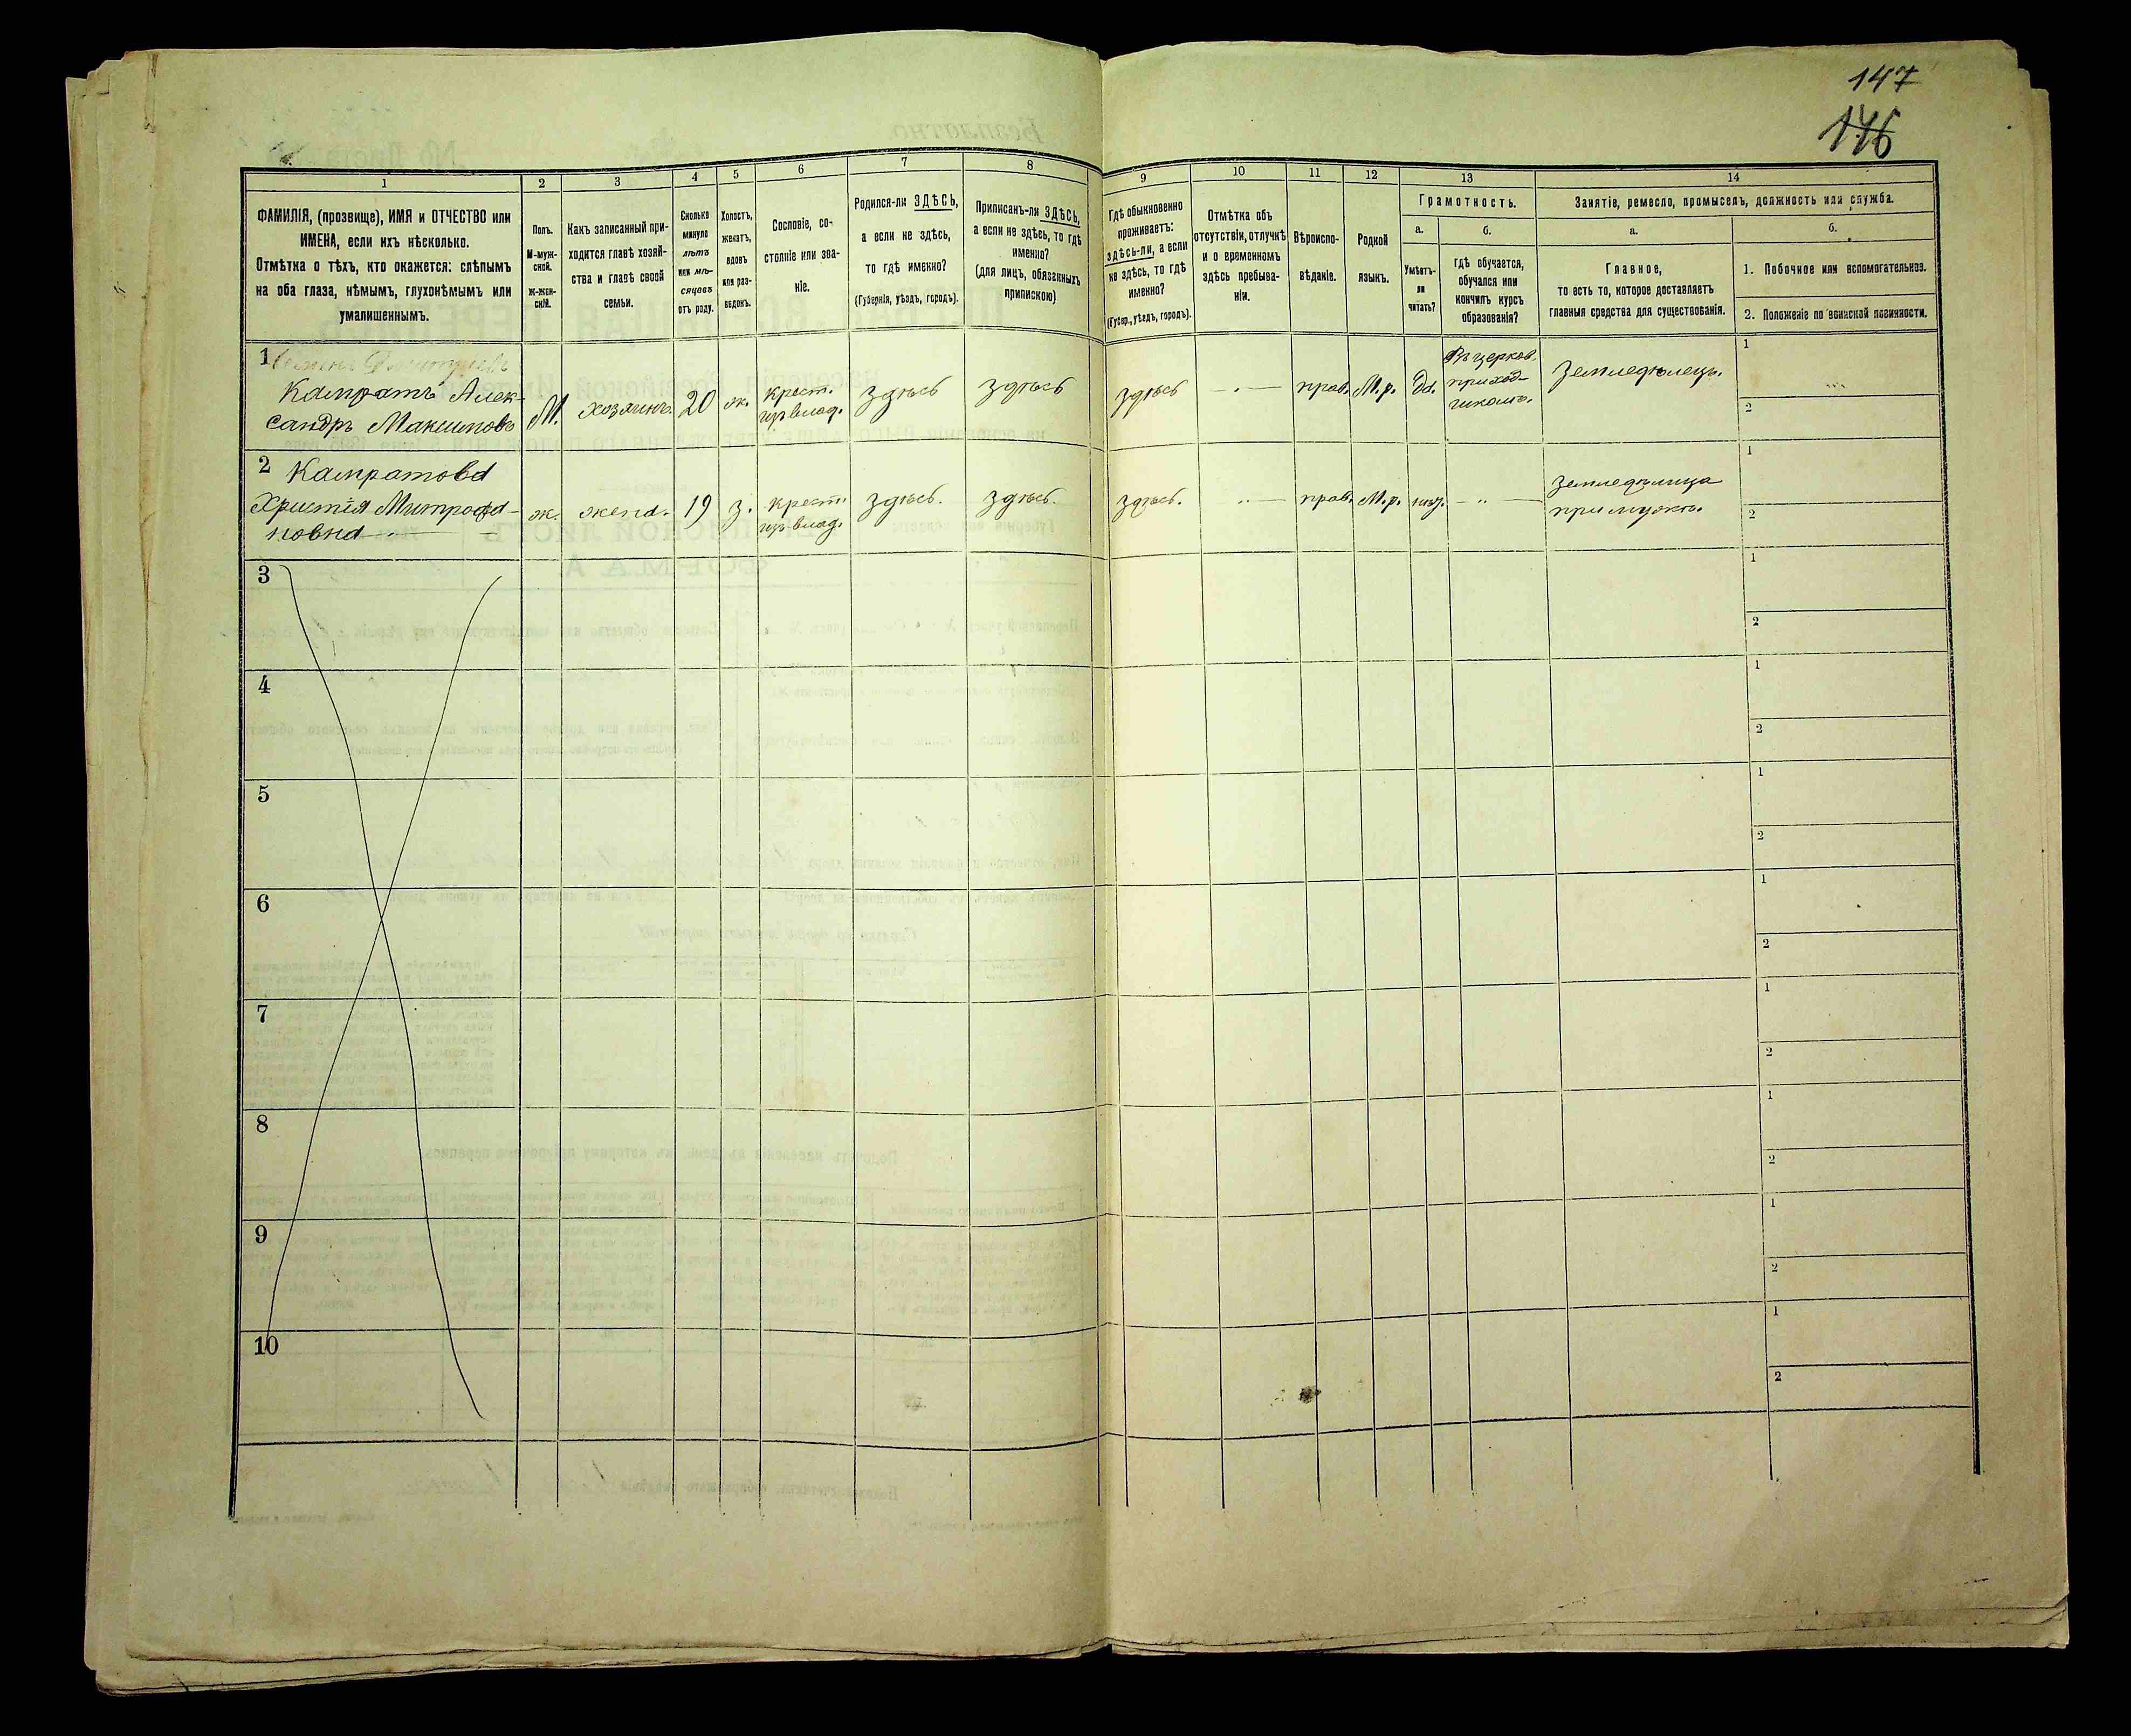 147
146
1
2
3
4
5
6
7
8
9
10
11
12
13
14
ФАМИЛІЯ, (прозвище), ИМЯ и ОТЧЕСТВО или
ИМЕНА, если ихъ нѣсколько.
Отмѣтка о тѣхъ, кто окажется: слѣпымъ
на оба глаза, нѣмымъ, глухонѣмымъ или
умалишеннымъ.
Полъ.
М-муж-
ской.
Ж-жен-
скій.
Какъ записанный при-
ходится главѣ хозяй-
ства и главѣ своей
семьи.
Сколько
минуло
лѣтъ
или мѣ-
сяцевъ
отъ роду.
Холостъ,
женатъ,
вдовъ
или раз-
веденъ.
Сословіе, со-
стояніе или зва-
ніе.
Родился-ли ЗДѢСЬ,
а если не здѣсь,
то гдѣ именно?
(Губернія, уѣздъ, городъ).
Приписанъ-ли ЗДѢСЬ,
а если не здѣсь, то гдѣ
именно?
(для лицъ, обязанныхъ
припискою)
Гдѣ обыкновенно
проживаетъ:
здѣсь-ли, а если
не здѣсь, то гдѣ
именно?
(Губер., уѣздъ, городъ).
Отмѣтка объ
отсутствіи, отлучкѣ
и о временномъ
здѣсь пребыва-
ніи.
Вѣроиспо-
вѣданіе.
Родной
языкъ.
Грамотность.
а.
Умѣетъ-
ли
читать?
б.
гдѣ обучается,
обучался или
кончилъ курсъ
образованія?
Занятіе, ремесло, промыселъ, должность или служба.
а.
Главное,
то есть то, которое доставляетъ
главныя средства для существованія.
б.
1. Побочное или вспомогательное.
2. Положеніе по воинской повинности.
1
Кампратъ Алек-
сандръ Максимовъ
М.
хозяинъ.
20
ж.
крест.
изъ влад.
здѣсь
здѣсь
здѣсь
— " —
прав.
М.р.
Да.
Въ церков.
приход-
школѣ.
Земледѣлецъ.
1
2
2
Кампратова
Христія Митрофа-
новна
ж.
жена.
19
з.
крест.
изъ влад.
здѣсь.
здѣсь.
здѣсь.
" —
прав.
М.р.
нѣт.
— " —
Земледѣлица
при мужѣ.
1
2
3
1
2
4
1
2
5
1
2
6
1
2
7
1
2
8
1
2
9
1
2
10
1
2